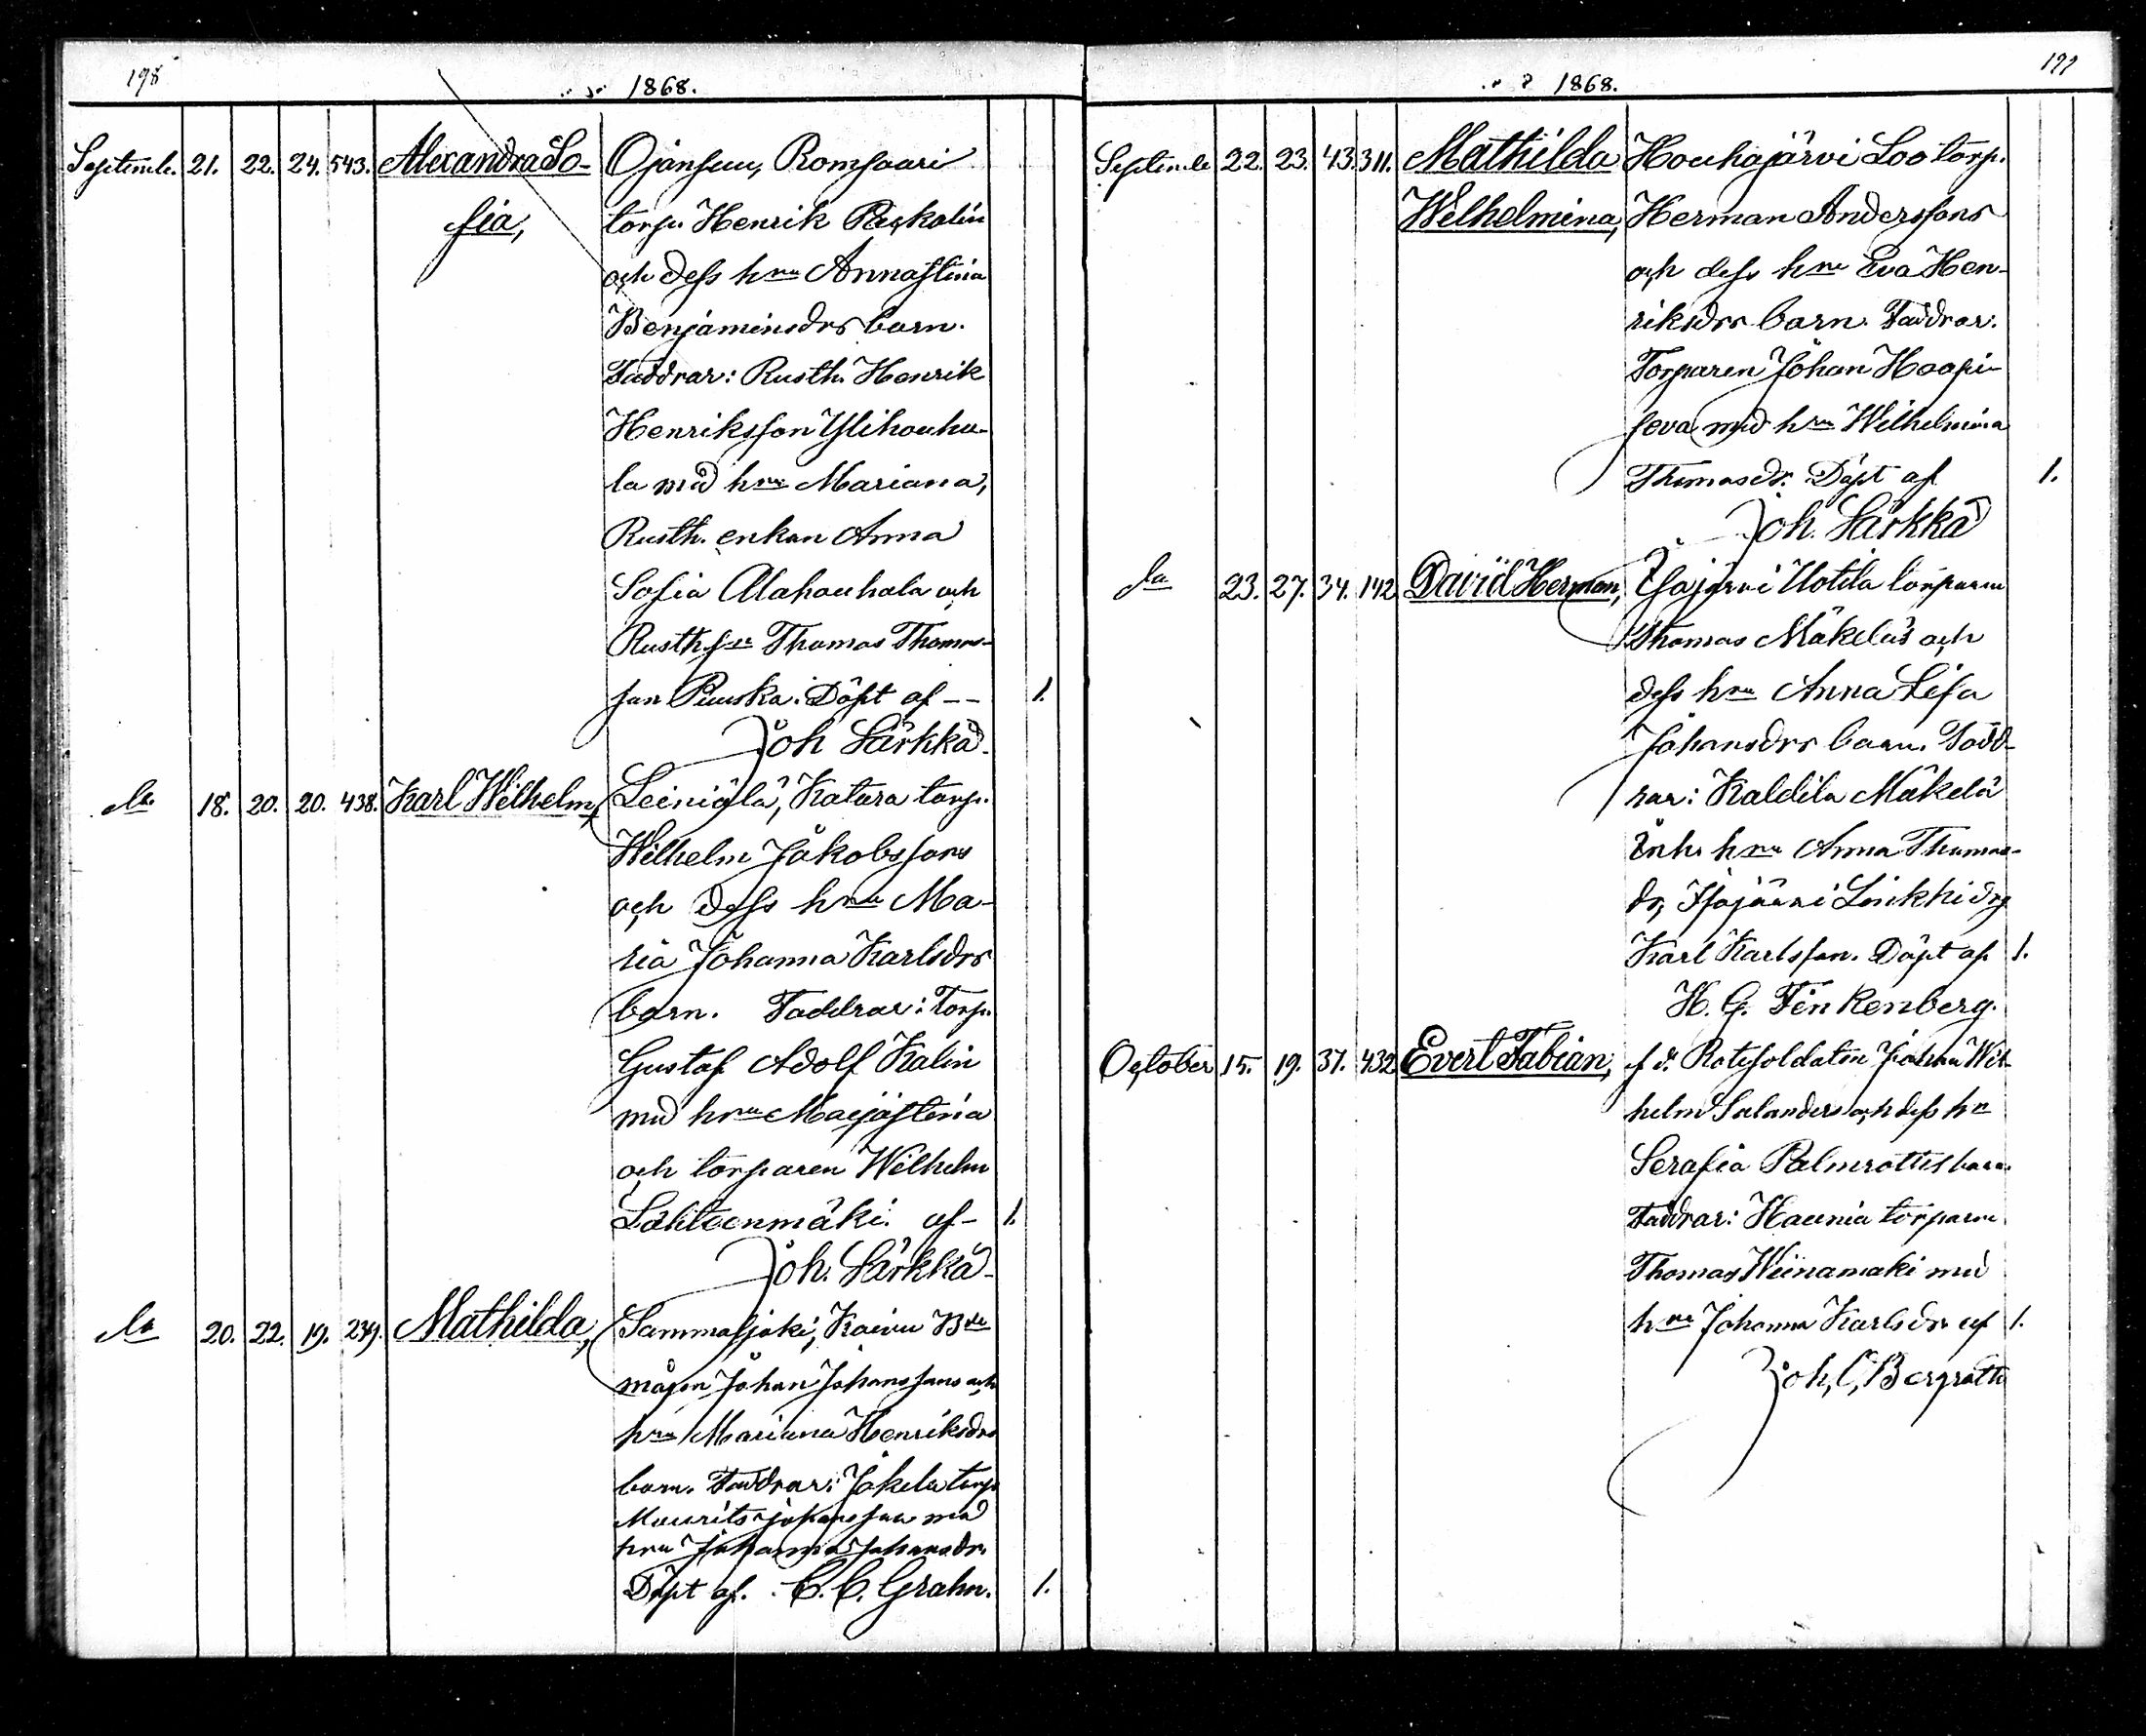 198
1868.
Septemb. 21. 22. 24. 543. Alexandra So- Ojansuu, Romsaari
fia, torp. Henrik Paskalin
och dess hru Annastina
Benjaminsdrs barn.
Faddrar: Rusth. Henrik
Henriksson Ylihouhu-
la med hru Mariana,
Rusth. enkan Anna
Sofia Alahouhala och
Rusth. sn Thomas Thomas-
son Puuska. Döpt af --
Joh Särkkä.
do 18. 20. 20. 438. Karl Wilhelm, Leiniälä, Katara torp.
Wilhelm Jakobssons
och dess hru Ma-
ria Johanna Karlsdrs
barn. Faddrar: Torp.
Gustaf Adolf Kalin
med hru Majastina
och torparen Wilhelm
Lähteenmäki. af- 1.
Joh. Särkkä
do 20. 22. 19. 239. Mathilda, Sammaljoki, Kaivu
mågen Johan Johanssons och
hru Mariana Henriksdrs
barn. Faddrar: Jakela torp
Mourits Johansson med
hru Johanna Johansdr.
Döpt af. C. C. Grahn. 1.
199
1868.
Septembe 22. 23. 43. 311. Mathilda Houhajärvi Loo torp.
Wilhelmina, Herman Anderssons
och dess hru Eva Hen-
riksdrs barn. Faddrar:
Torparen Johan Haapi-
seva med hru Wilhelmina
Thomasdr. Döpt af 1.
Joh. Särkkä
do 23. 27. 34. 142 David Herman, Isojärvi Uotila torparen
Thomas Mäkeläs och
dess hru Anna Lisa
Johansdrs barn. Fadd-
rar: Kaldila Mäkelä
Inh. hru Anna Thomas-
dr, Isojärvi Linkki drg
Karl Karlsson. Döpt af 1.
H. G. Finkenberg.
October 15. 19. 37. 432 Evert Fabian, f.d. Rotesoldaten Johan Wil-
helm Selanders och dess hru
Serafia Palmroths barn
Faddrar: Haunia torparen
Thomas Wiinamaki med
hru Johanna Karlsdr af 1.
Joh, C, Bergroth